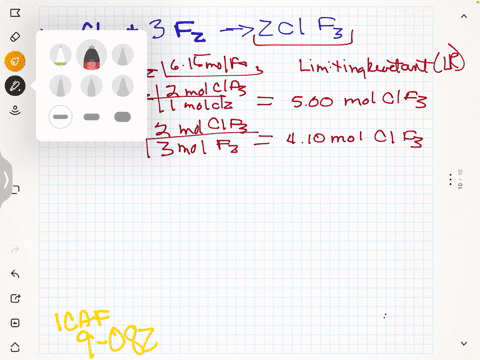 + 3 F2 → 2 Cl F3
6.15 mol F2 Limiting Reactant (LR)
2 mol Cl F3
1 mol Cl2 = 5.00 mol Cl F3
2 mol Cl F3
3 mol F2 = 4.10 mol Cl F3
10 / 10
ICAF
9-082